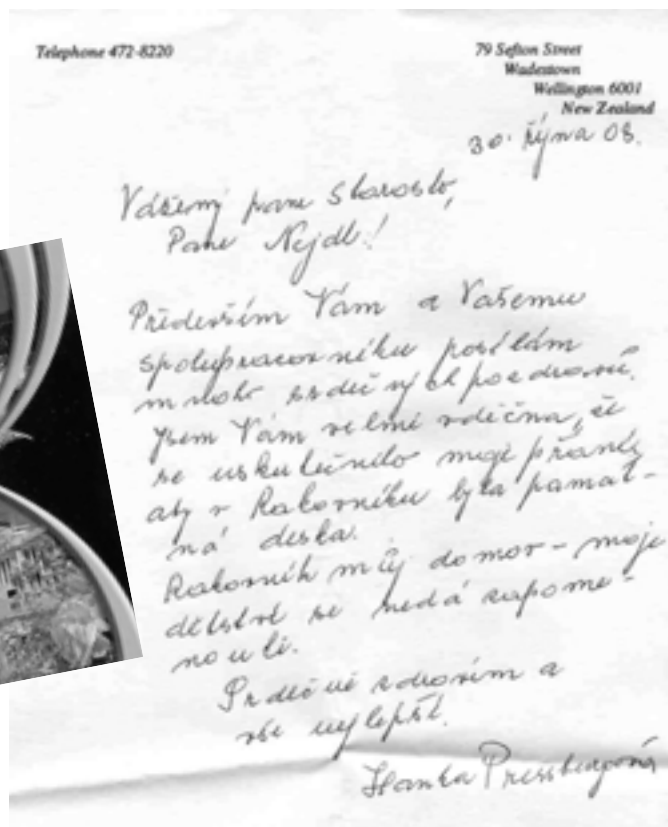 Telephone 472-8220
79 Sefton Street
Wadestown
Wellington 6001
New Zealand
30. října 08.
Vážený pane starosto,
Pane Nejdl!
Především Vám a Vašemu
spolupracovníku posílám
mnoho srdečných pozdravů.
Jsem Vám velmi vděčna, že
se uskutečnilo moje přání,
aby v Rakovníku byla pamat-
ná deska.
Rakovník můj domov - moje
dětství se nedá zapome-
nouti.
Srdečně zdravím a
vše nejlepší.
Hanka Pressburgová